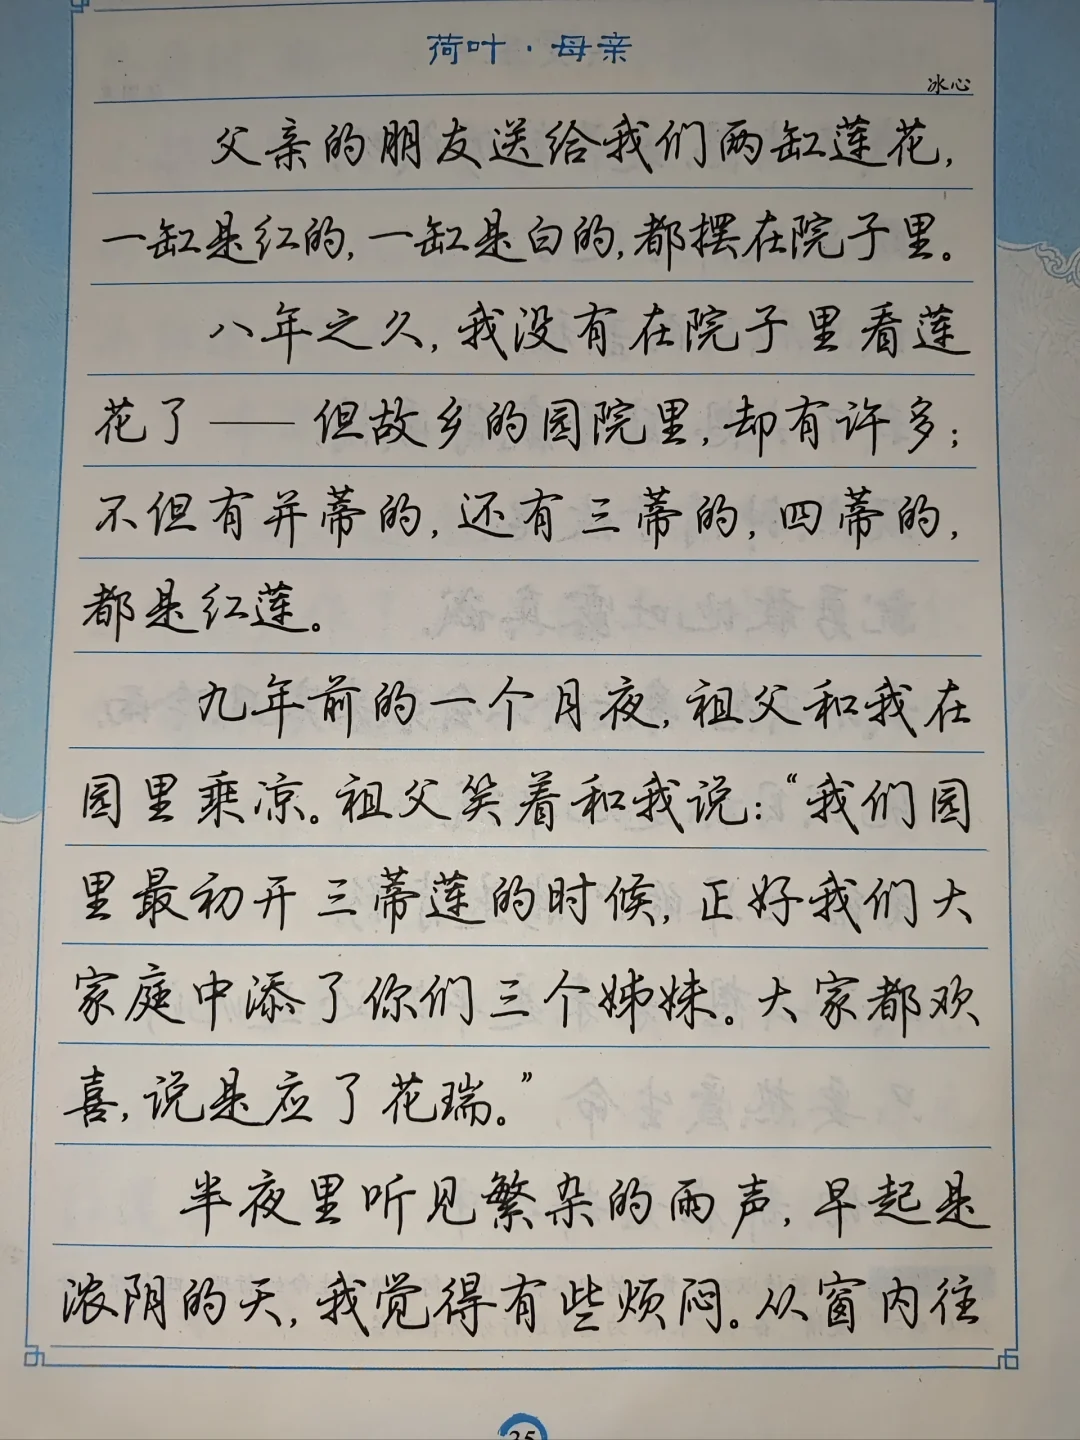 荷叶·母亲
冰心
父亲的朋友送给我们两缸莲花，
一缸是红的，一缸是白的，都摆在院子里。
八年之久，我没有在院子里看莲
花了——但故乡的园院里，却有许多；
不但有并蒂的，还有三蒂的，四蒂的，
都是红莲。
九年前的一个月夜，祖父和我在
园里乘凉。祖父笑着和我说：“我们园
里最初开三蒂莲的时候，正好我们大
家庭中添了你们三个姊妹。大家都欢
喜，说是应了花瑞。”
半夜里听见繁杂的雨声，早起是
浓阴的天，我觉得有些烦闷。从窗内往
35